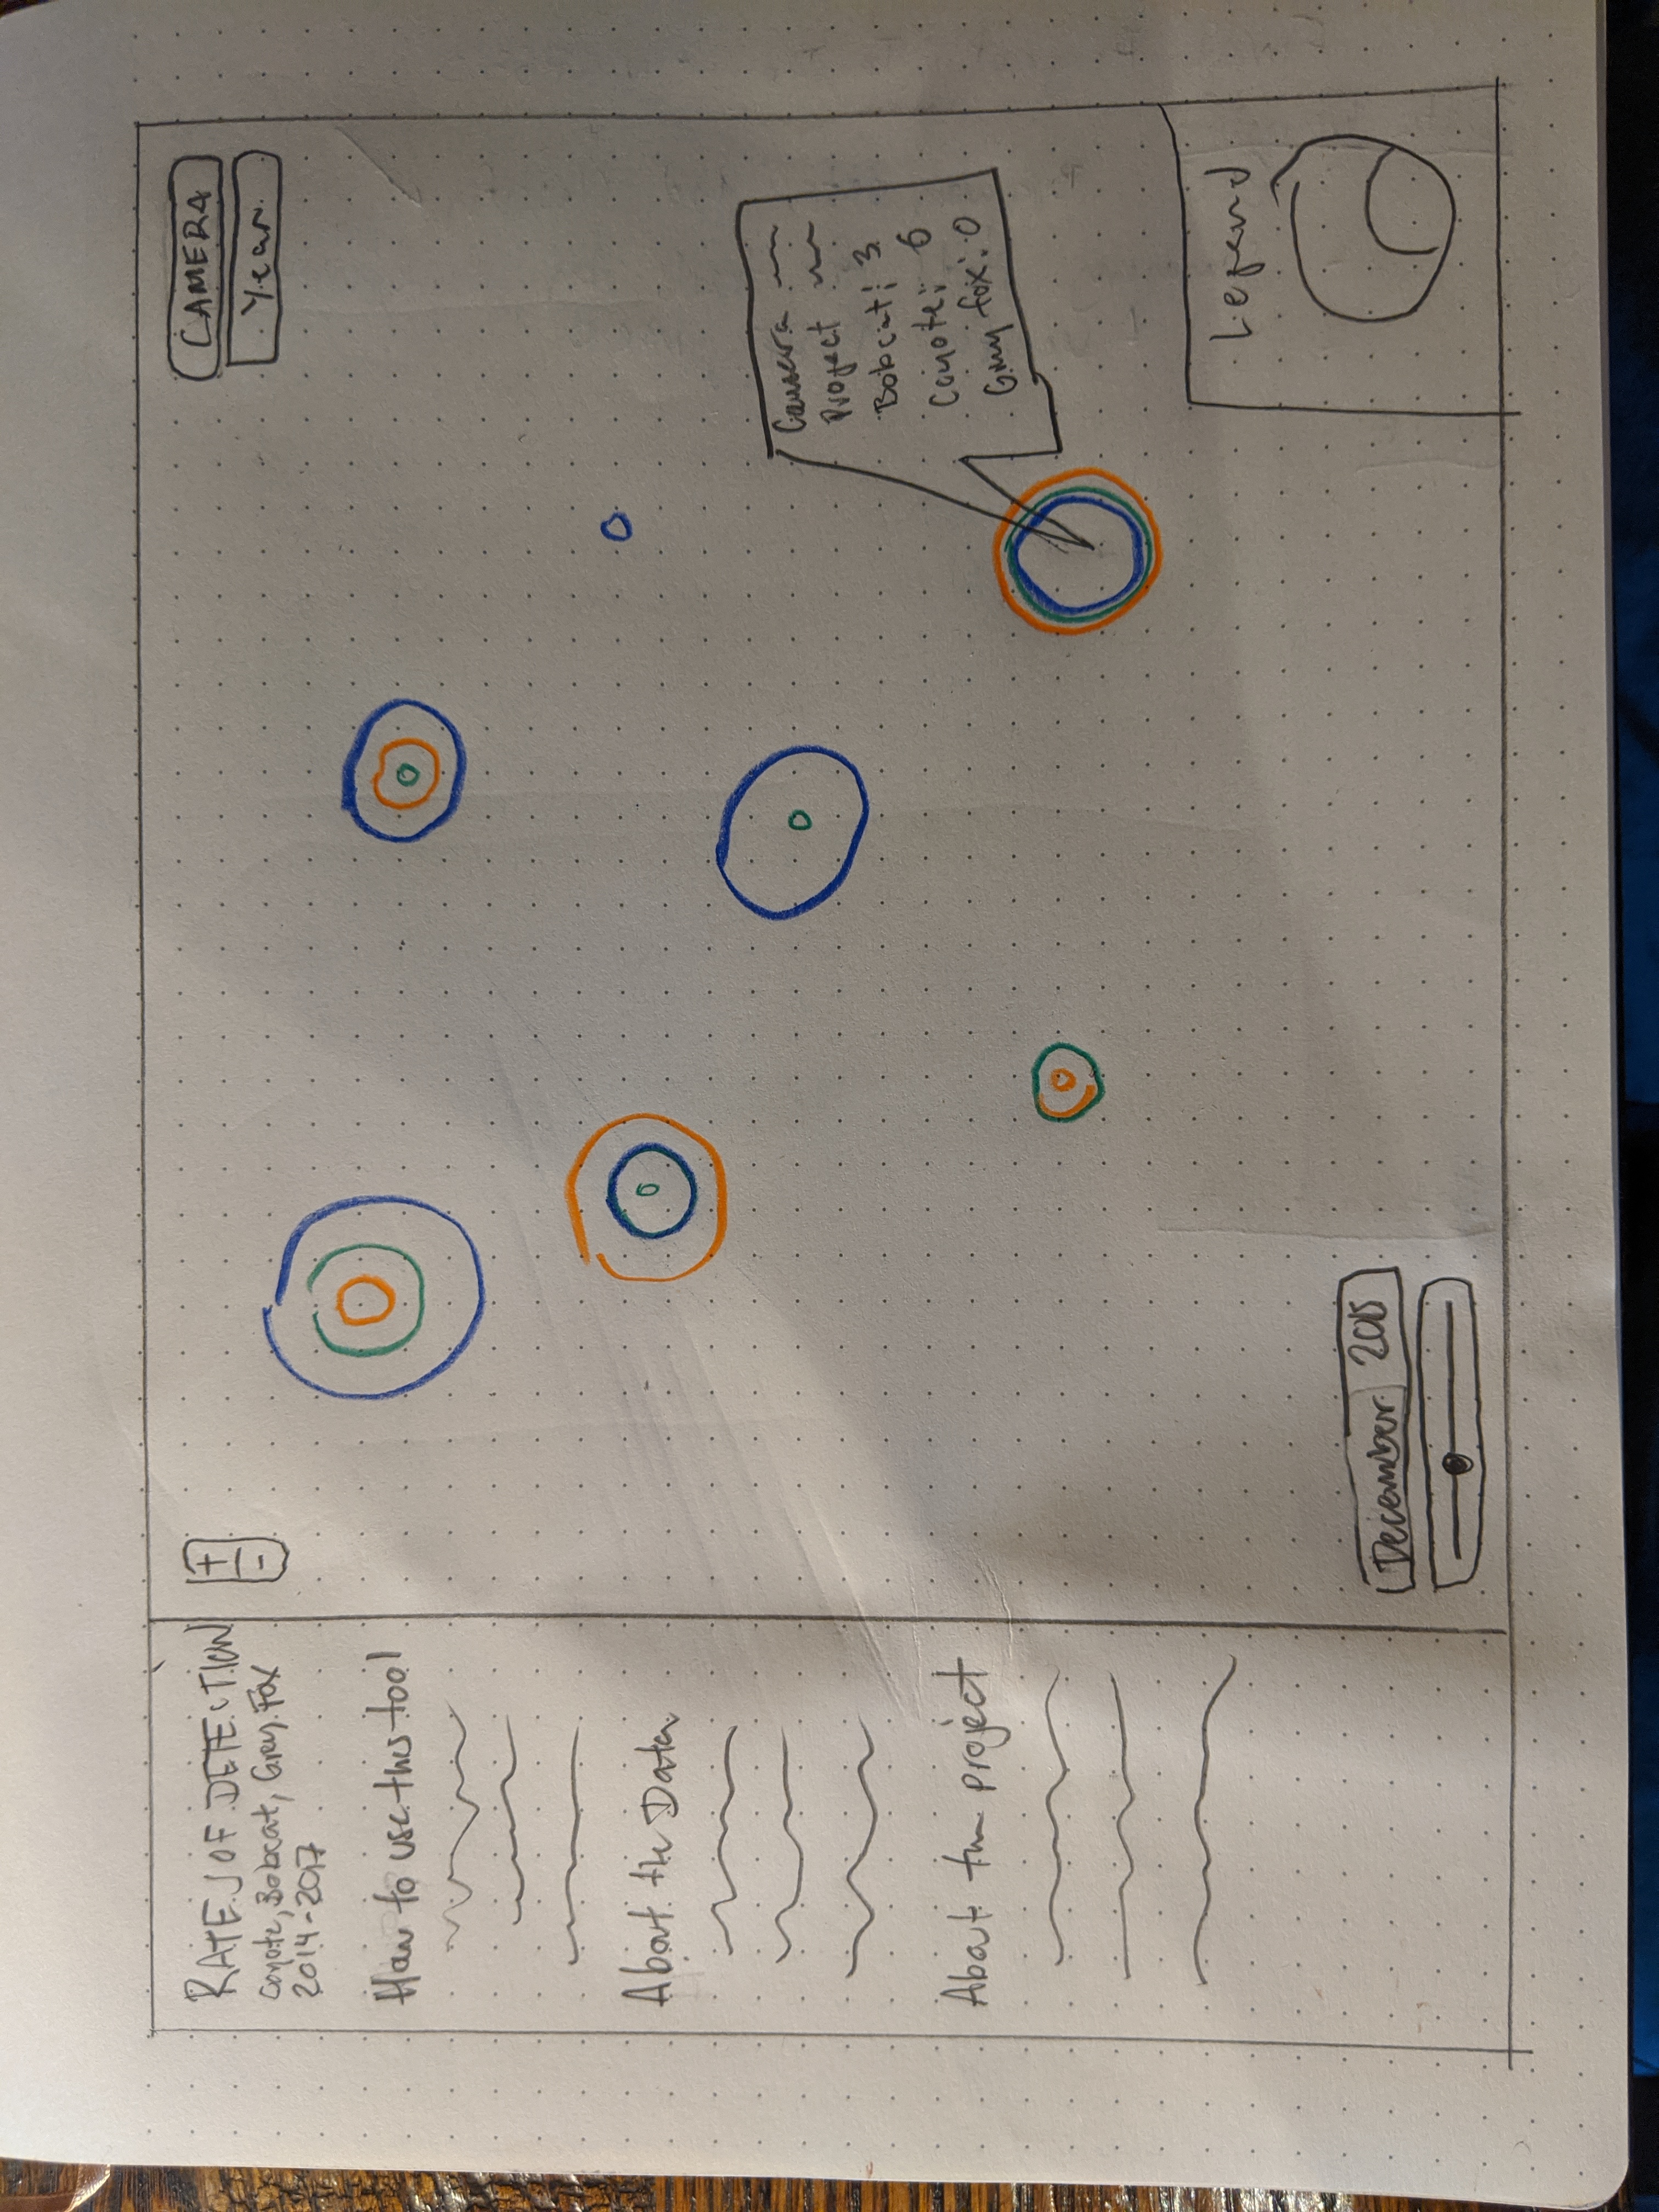 RATES OF DETECTION
Coyote, Bobcat, Grey Fox
2014-2017
How to use this tool
About the Data
About the project
+
-
CAMERA
Year
Camera
Project
Bobcat: 3
Coyote: 6
Grey fox: 0
December 2015
Legend